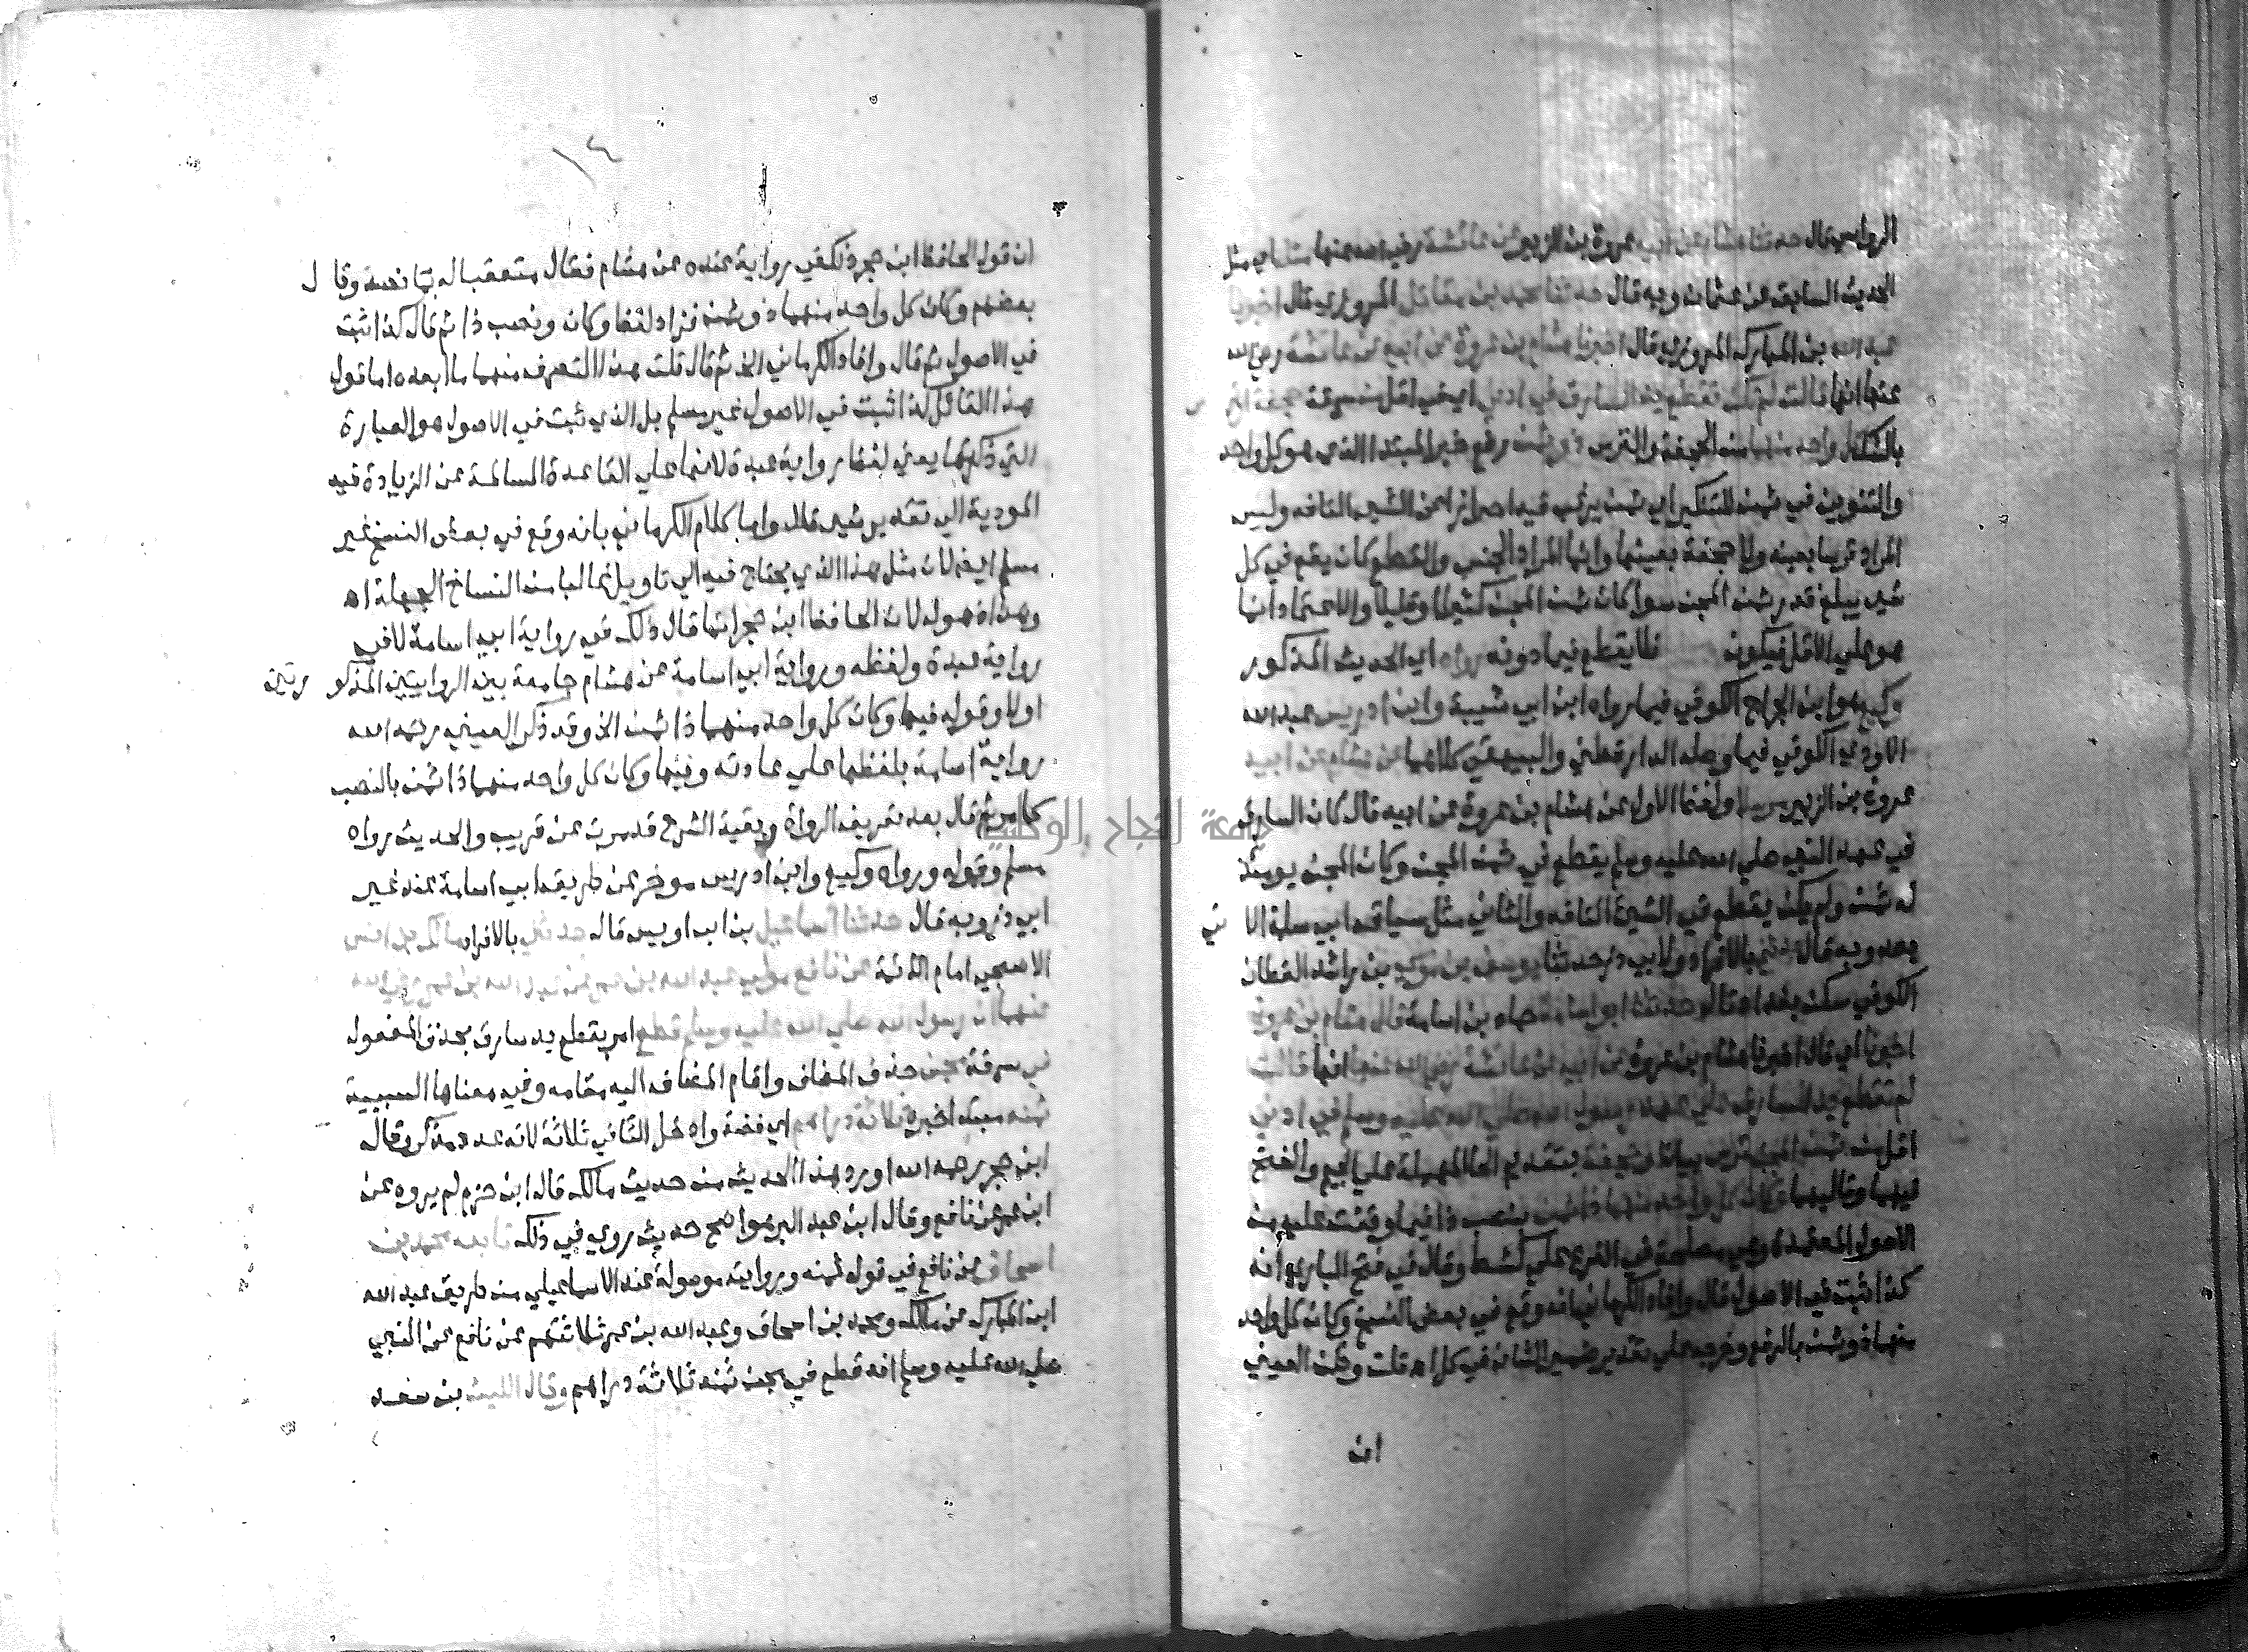 الرواسي قال حدثنا هشام عن ابيه عروة بن الزبير عن عائشة رضي الله عنها مثله اي مثل
الحديث السابق عن عثمان وبه قال حدثنا محمد بن مقاتل المروزي قال اخبرنا
عبد الله بن المبارك المروزي قال اخبرنا هشام بن عروة عن ابيه عن عائشة رضي الله
عنها انها قالت لم تكن تقطع يد السارق في ادني اي في اقل من سرقة حجفة او ترس
كل واحد منهما من الحجفة والترس ذو ثمن رفع خبر المبتدا الذي هو كل واحد
والتنوين في ثمن للتنكير اي ثمن يرغب فيه احترازا عن الشيء التافه وليس
المراد ترسا بعينه ولا حجفة بعينها وانما المراد الجنس والقطع كان يقع في كل
شيء يبلغ قدر ثمن المجن سوا كان ثمن المجن كثيرا او قليلا والاعتماد انما
هو علي الاقل فيكون فلا يقطع فيما دونه رواه اي الحديث المذكور
وكيع هو ابن الجراح الكوفي فيما رواه ابن ابي شيبة وابن ادريس عبد الله
الاودي الكوفي فيما وصله الدارقطني والبيهقي كلاهما عن هشام عن ابيه
عروة بن الزبير مرسلا ولفظ الاول عن هشام بن عروة عن ابيه قال كان السارق
في عهد النبي صلي الله عليه وسلم يقطع في ثمن المجن وكان المجن يومئذ
له ثمن ولم يكن يقطع في الشيء التافه والثاني مثل سياق ابي سلمة الاتي
بعد وبه قال حدثني بالافراد ولابي ذر حدثنا يوسف بن موسي بن راشد القطان
الكوفي سكن بغداد قال حدثنا ابو اسامة حماد بن اسامة قال هشام بن عروة
اخبرنا اي قال اخبرنا هشام بن عروة عن ابيه عن عائشة رضي الله عنها انها قالت
لم تقطع يد السارق علي عهد رسول الله صلي الله عليه وسلم في ادني
اقل من ثمن المجن ترس بيان او حجفة بتقديم الحا المهملة علي الجيم والفتح
فيهما وتاليهما وكان كل واحد منهما ذا ثمن بنصب ذا فيما وقفت عليه من
الاصول المعتمدة وهي مصلحة في الفرع علي كشط وقال في فتح الباري وانه
كذا ثبت في الاصول قال وافاد الكرماني انه وقع في بعض النسخ وكان كل واحد
منهما ذو ثمن بالرفع وخرجه علي تقدير ضمير الشان في كان اه قلت وظن العيني
ان
١٤
ان قول الحافظ ابن حجر ذلك في رواية عبده عن هشام فقال متعقبا له بما نصه وقال
بعضهم وكان كل واحد منهما ذو ثمن فزاد لفظ وكان ونصب ذا ثم قال كذا ثبت
في الاصول ثم قال وافاد الكرماني الخ ثم قال قلت هذا التصرف منهما ما ابعده اما قول
هذا القائل كذا ثبت في الاصول غير مسلم بل الذي ثبت في الاصول هو العبارة
التي ذكرتها يعني لفظ رواية عبدة لانها علي القاعدة السالمة عن الزيادة فيه
المودية الي تقدير شيء قال واما كلام الكرماني بانه وقع في بعض النسخ غير
مسلم ايضا لان مثل هذا الذي يحتاج فيه الي تاويل غالبا من النساخ الجهلة اه
وهذا ذهول لان الحافظ ابن حجر انما قال ذلك في رواية ابي اسامة لا في
رواية عبدة ولفظه ورواية ابي اسامة عن هشام جامعة بين الروايتين المذكورتين
اولا وقوله فيها وكان كل واحد منهما ذا ثمن الخ وقد ذكر العيني رحمه الله
رواية اسامة بلفظها علي عادته وفيها وكان كل واحد منهما ذا ثمن بالنصب
كما مر ثم قال بعد تعريف الرواة وبقية الشرح قد مرت عن قريب والحديث رواه
مسلم وقوله ورواه وكيع وابن ادريس موخر عن طريق ابي اسامة عند غير
ابي ذر وبه قال حدثنا اسماعيل بن ابي اويس قال حدثني بالافراد مالك بن انس
الاصبحي امام الائمة عن نافع مولي عبد الله بن عمر عن عبد الله بن عمر رضي الله
عنهما ان رسول الله صلي الله عليه وسلم قطع امر بقطع يد سارق بحذف المفعول
في سرقة مجن حذف المضاف واقام المضاف اليه مقامه وفي معناها السببية
ثمنه مبتدا خبره ثلاثة دراهم اي فضة وادخل التا في ثلاثة لانه عدد مذكر وقال
ابن حجر رحمه الله اورد هذا الحديث من حديث مالك قال ابن حزم لم يروه عن
ابن عمر عن نافع وقال ابن عبد البر هو اصح حديث روي في ذلك تابعه محمد بن
اسحاق عن نافع في قوله ثمنه وروايته موصولة عند الاسماعيلي من طريق عبد الله
ابن المبارك عن مالك ومحمد بن اسحاق وعبد الله بن عمر ثلاثتهم عن نافع عن النبي
صلي الله عليه وسلم انه قطع في مجن ثمنه ثلاثة دراهم وقال الليث بن سعد
جامعة النجاح الوطنية